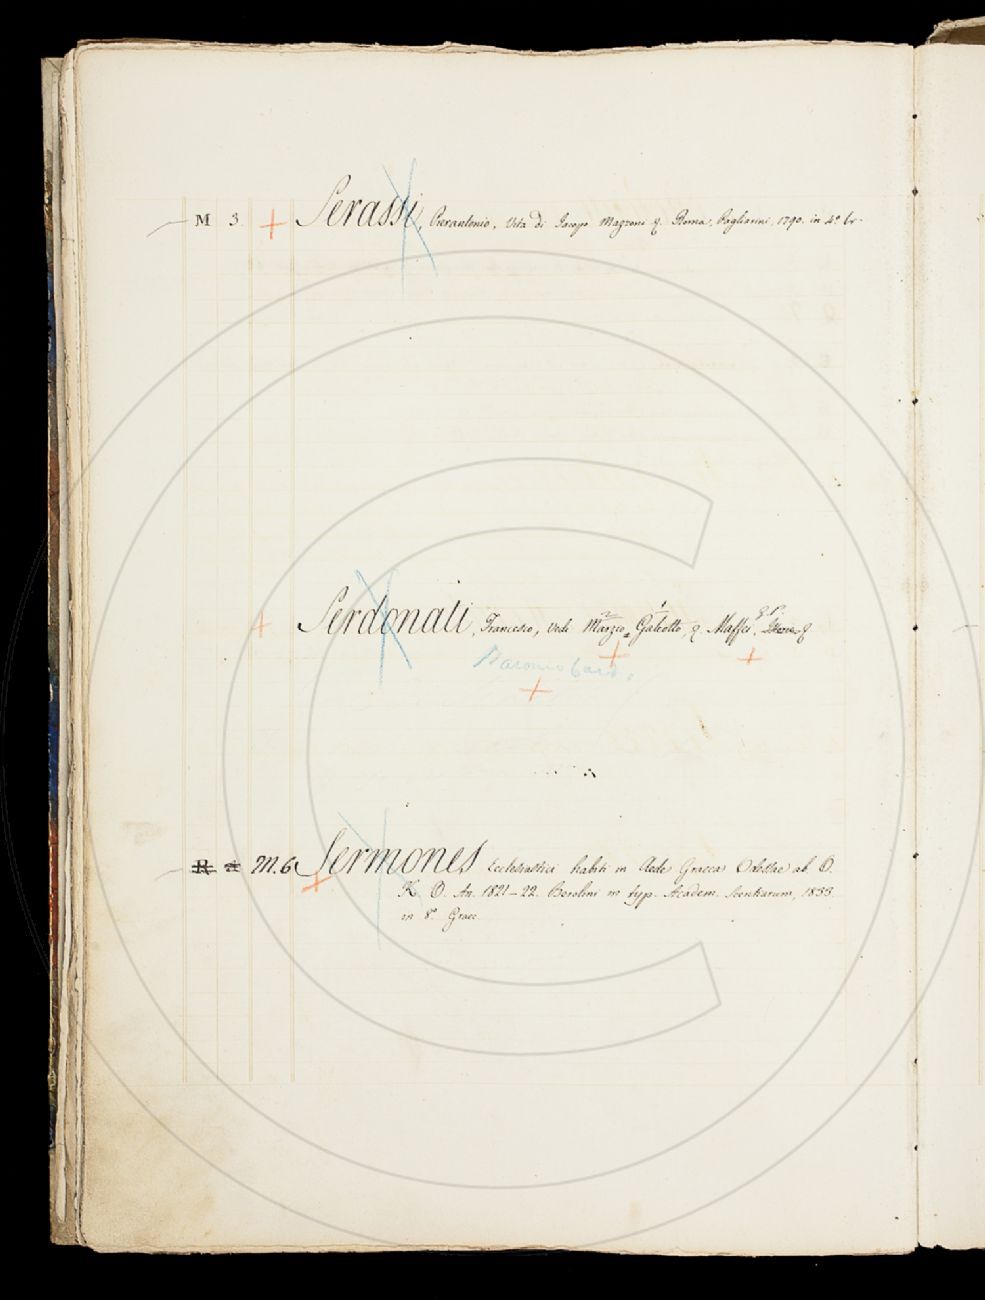 M 3. Serassi, Pierantonio, Vita di Jacopo Mazzoni &. Roma, Pagliarini, 1790. in 4.º br.
Serdonati, Francesco, Vedi Marzio Galeotto, &. Maffei, &.
Baronio Card.
M. 6 Sermones Ecclesiastici habiti in Aede Graeca Odessae ab O.
K. O. An. 1821-22. Berolini in typ. Academ. Scientiarum, 1833.
in 8.º Graec.